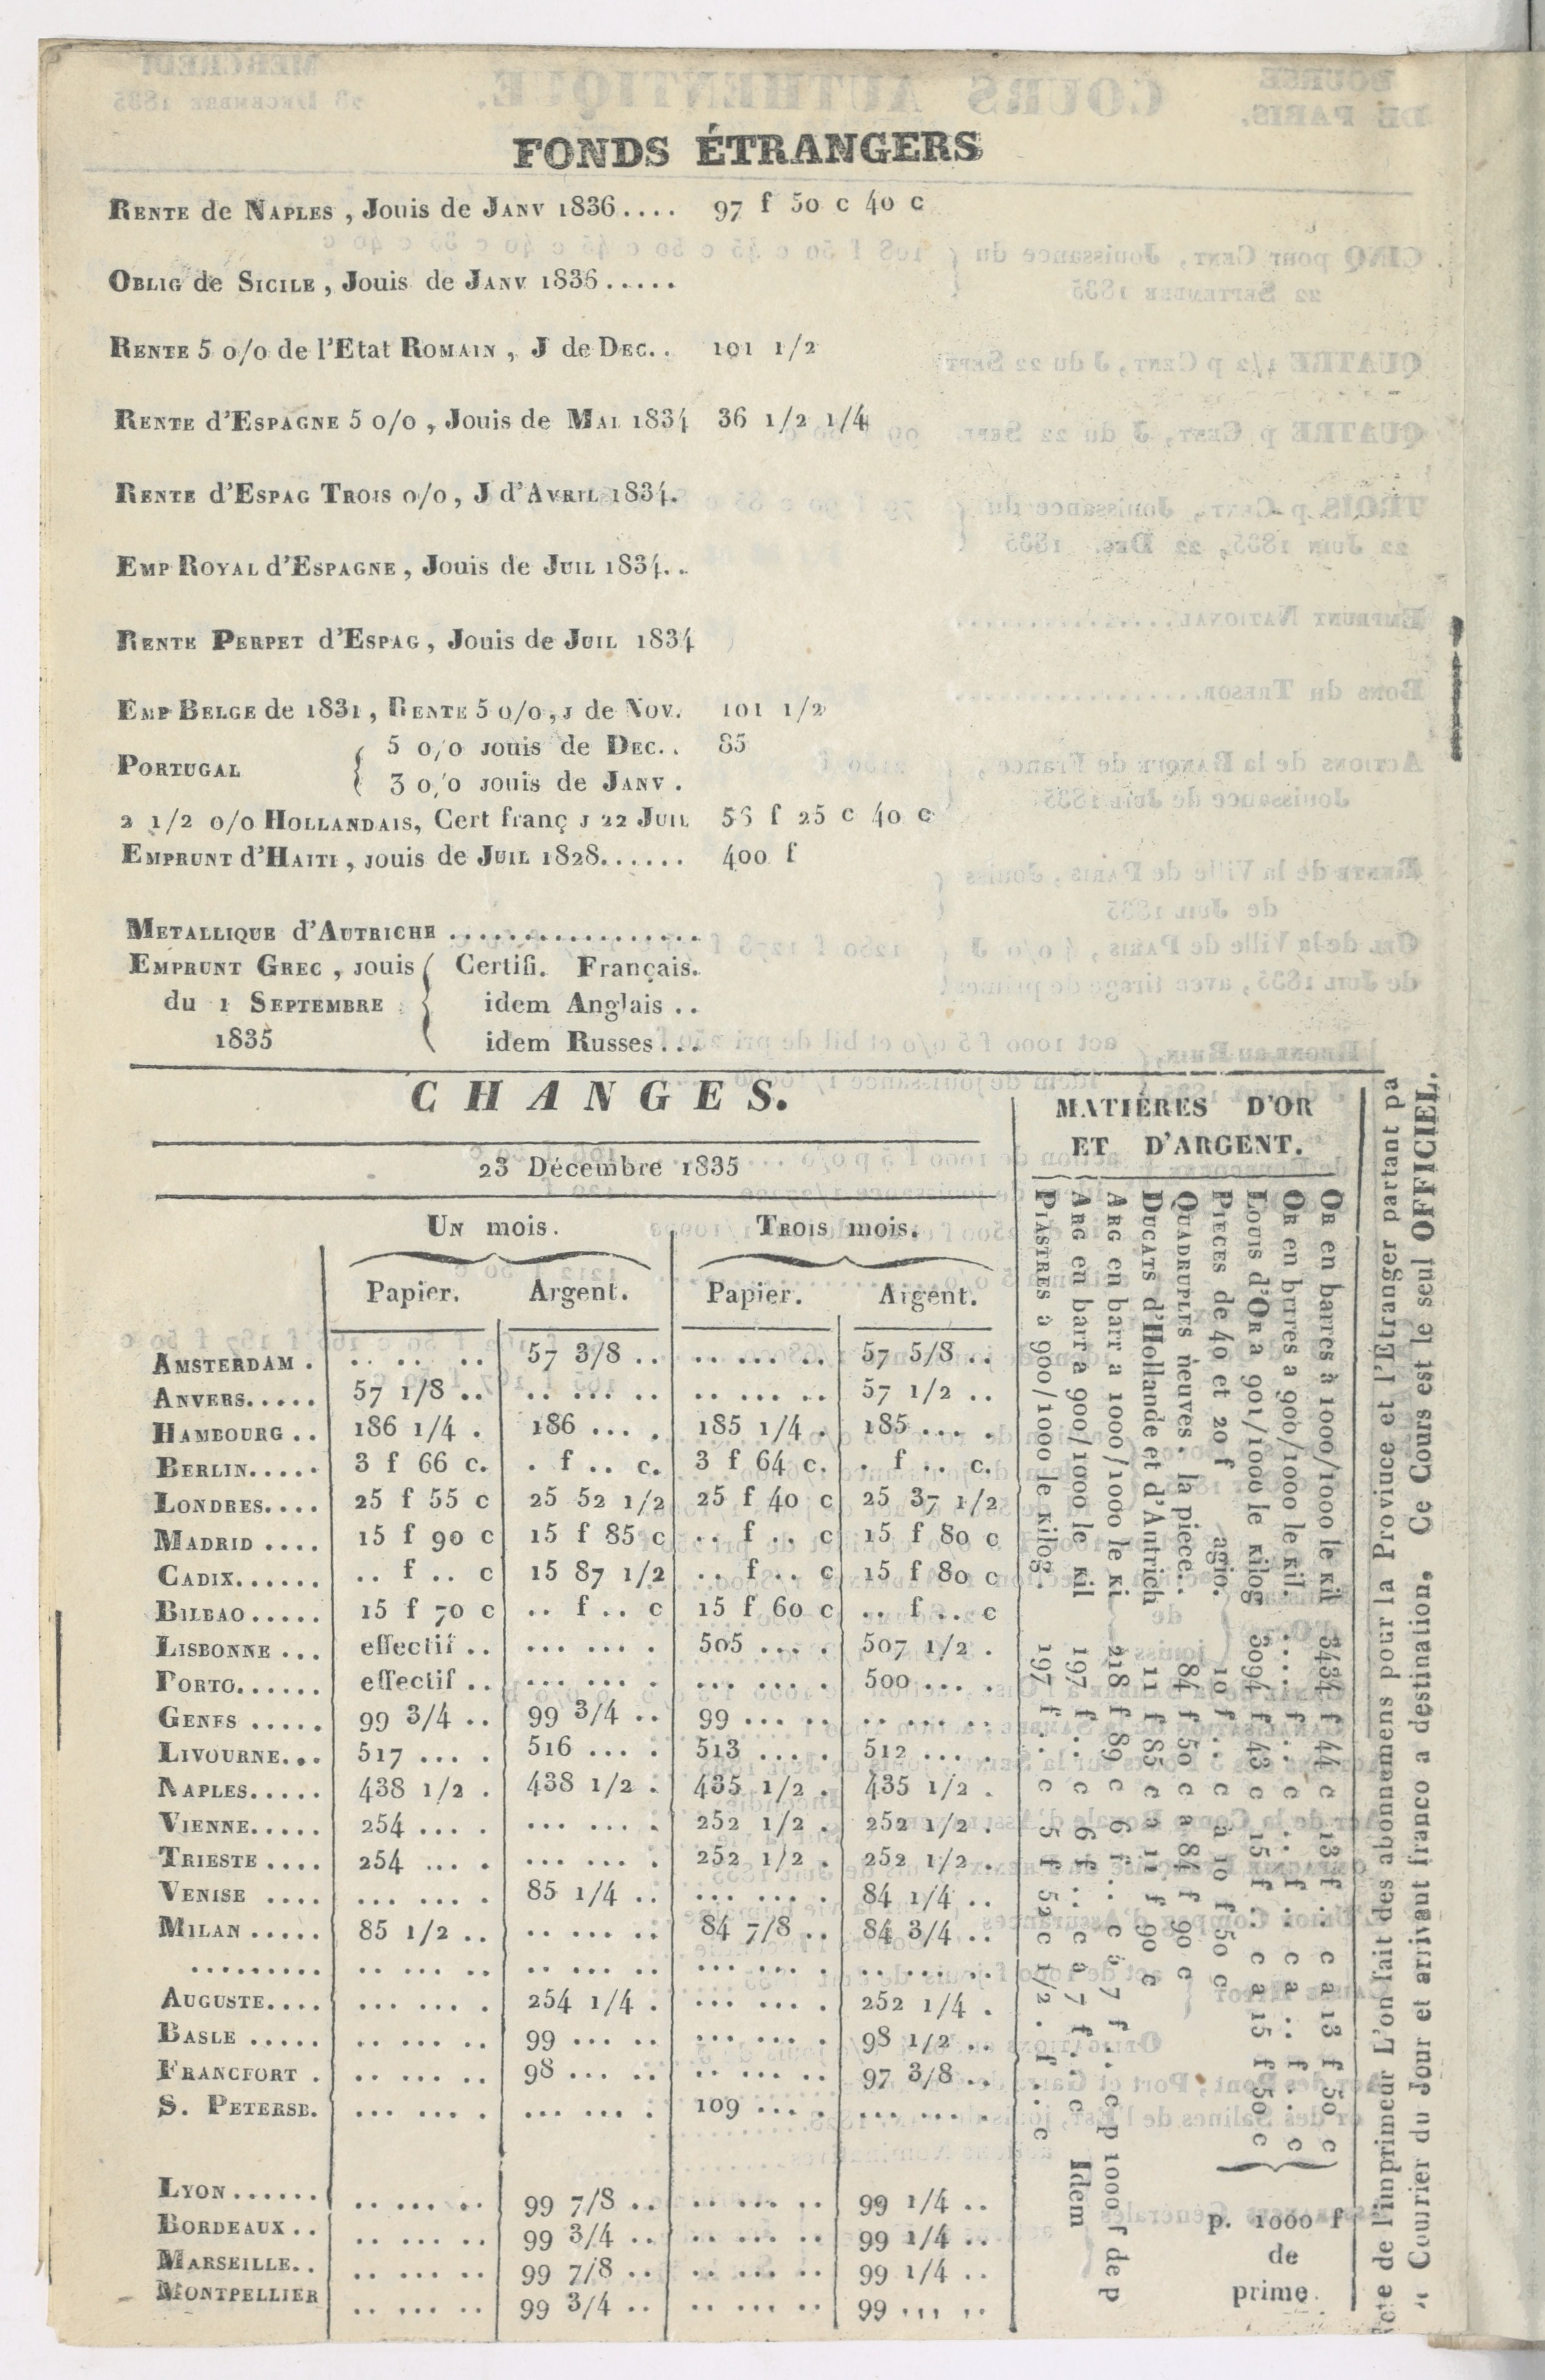 FONDS ÉTRANGERS
RENTE de NAPLES , Jouis de JANV 1836.... 97 f 50 c 40 c
OBLIG de SICILE , Jouis de JANV 1836.....
RENTE 5 0/0 de l'Etat ROMAIN , J de DEC. . 101 1/2
RENTE d'ESPAGNE 5 0/0 , Jouis de MAI 1834 36 1/2 1/4
RENTE d'ESPAG TROIS 0/0, J d'AVRIL 1834.
EMP ROYAL d'ESPAGNE , Jouis de JUIL 1834. .
RENTE PERPET d'ESPAG , Jouis de JUIL 1834
EMP BELGE de 1831 , RENTE 5 0/0, J de NOV. 101 1/2
PORTUGAL { 5 0/0 jouis de DEC. . 85
3 0/0 jouis de JANV .
2 1/2 0/0 HOLLANDAIS, Cert franç J 22 JUIL 56 f 25 c 40 c
EMPRUNT d'HAITI , jouis de JUIL 1828...... 400 f
METALLIQUE d'AUTRICHE .................
EMPRUNT GREC , jouis { Certifi. Français.
du 1 SEPTEMBRE idem Anglais . .
1835 idem Russes . . .
CHANGES.
23 Décembre 1835
UN mois. TROIS mois.
Papier. Argent. Papier. Argent.
AMSTERDAM . .. .. .. 57 3/8 .. .. ... .. 57 5/8 ..
ANVERS..... 57 1/8 .. .. ... .. .. ... .. 57 1/2 ..
HAMBOURG .. 186 1/4 . 186 ... . 185 1/4 . 185 ... .
BERLIN..... 3 f 66 c. . f .. c. 3 f 64 c. . f .. c.
LONDRES.... 25 f 55 c 25 52 1/2 25 f 40 c 25 37 1/2
MADRID .... 15 f 90 c 15 f 85 c .. f .. c 15 f 80 c
CADIX...... .. f .. c 15 87 1/2 .. f .. c 15 f 80 c
BILBAO..... 15 f 70 c .. f .. c 15 f 60 c .. f .. c
LISBONNE ... effectif .. ... ... . 505 ... . 507 1/2 .
PORTO...... effectif .. ... ... . ... ... . 500 ... .
GENES ..... 99 3/4 .. 99 3/4 .. 99 ... .. .. ... ..
LIVOURNE... 517 ... . 516 ... . 513 ... . 512 ... .
NAPLES..... 438 1/2 . 438 1/2 . 435 1/2 . 435 1/2 .
VIENNE..... 254 ... . ... ... . 252 1/2 . 252 1/2 .
TRIESTE .... 254 ... . ... ... . 252 1/2 . 252 1/2 .
VENISE .... ... ... . 85 1/4 .. ... ... . 84 1/4 ..
MILAN ..... 85 1/2 .. .. ... .. 84 7/8 .. 84 3/4 ..
......... .. ... .. .. ... .. ... ... . .. ... ..
AUGUSTE.... ... ... . 254 1/4 . ... ... . 252 1/4 .
BASLE ..... .. ... .. 99 ... .. ... ... . 98 1/2 ..
FRANCFORT . .. ... .. 98 ... .. .. ... .. 97 3/8 ..
S. PETERSB. ... ... . ... ... . 109 ... . ... ... .
LYON...... .. ... .. 99 7/8 .. .. ... .. 99 1/4 ..
BORDEAUX .. .. ... .. 99 3/4 .. .. ... .. 99 1/4 ..
MARSEILLE.. .. ... .. 99 7/8 .. .. ... .. 99 1/4 ..
MONTPELLIER .. ... .. 99 3/4 .. .. ... .. 99 ... ..
MATIÈRES D'OR
ET D'ARGENT.
OR en barres à 1000/1000 le KIL 3434 f 44 c 13 f . . c a 13 f 50 c
OR en brres a 900/1000 le KIL. .... f . . c . . f . . c a . . f . . c
LOUIS d'OR a 901/1000 le KILOG 3094 f 43 c 15 f . . c a 15 f 50 c
PIECES de 40 et 20 f agio. 10 f . . c a 10 f 50 c
QUADRUPLES neuves, la piece.. 84 f 50 c a 84 f 90 c
DUCATS d'Hollande et d'Autrich 11 f 85 c a 11 f 90 c
ARG en barr a 1000/1000 le KI 218 f 89 c 6 f . . c à 7 f . . c p 1000 f de p
ARG en barr a 900/1000 le KIL 197 f . . c 6 f . . c a 7 f . . c Idem
PIASTRES à 900/1000 le KILOG. 197 f . . c 5 f 52 c 1/2 . f . . c
p. 1000 f
de
prime.
de l'imprimeur L'on fait des abonnemens pour la Proviuce et l'Etranger partant pa
Courrier du Jour et arrivaut franco a destination, Ce Cours est le seul OFFICIEL.